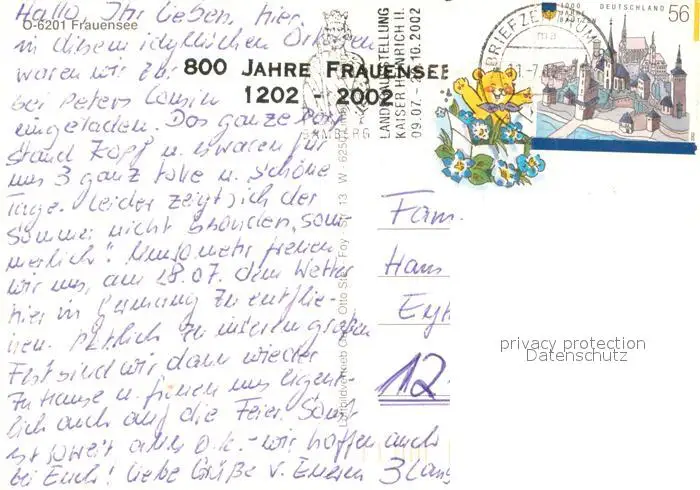 Hallo Ihr Lieben, hier
O-6201 Frauensee
in diesem idyllischen Örtchen
waren wir zur
800 JAHRE FRAUENSEE
1202 - 2002
bei Peters Cousin
eingeladen. Das ganze Dorf
stand Kopf u. es waren für
uns 3 ganz tolle u. schöne
Tage. Leider zeigt sich der
Sommer nicht besonders "som-
merlich". Umsomehr freuen
wir uns, am 28.07. dem Wetter
hier in Germany zu entflie-
hen. Pünktlich zu
Fest sind wir dann wieder
zu Hause u. freuen uns eigent-
lich auch auf die Feier. Sonst
ist soweit alles o.k. - wir hoffen auch
bei Euch! Liebe Grüße v. Eueren 3
LANDESAUSSTELLUNG
KAISER HEINRICH II.
09.07. - 20.10.2002
BAMBERG
BRIEFZENTRUM
1000 JAHRE BAUTZEN
DEUTSCHLAND
56
Fam.
Hans
12
privacy protection
Datenschutz